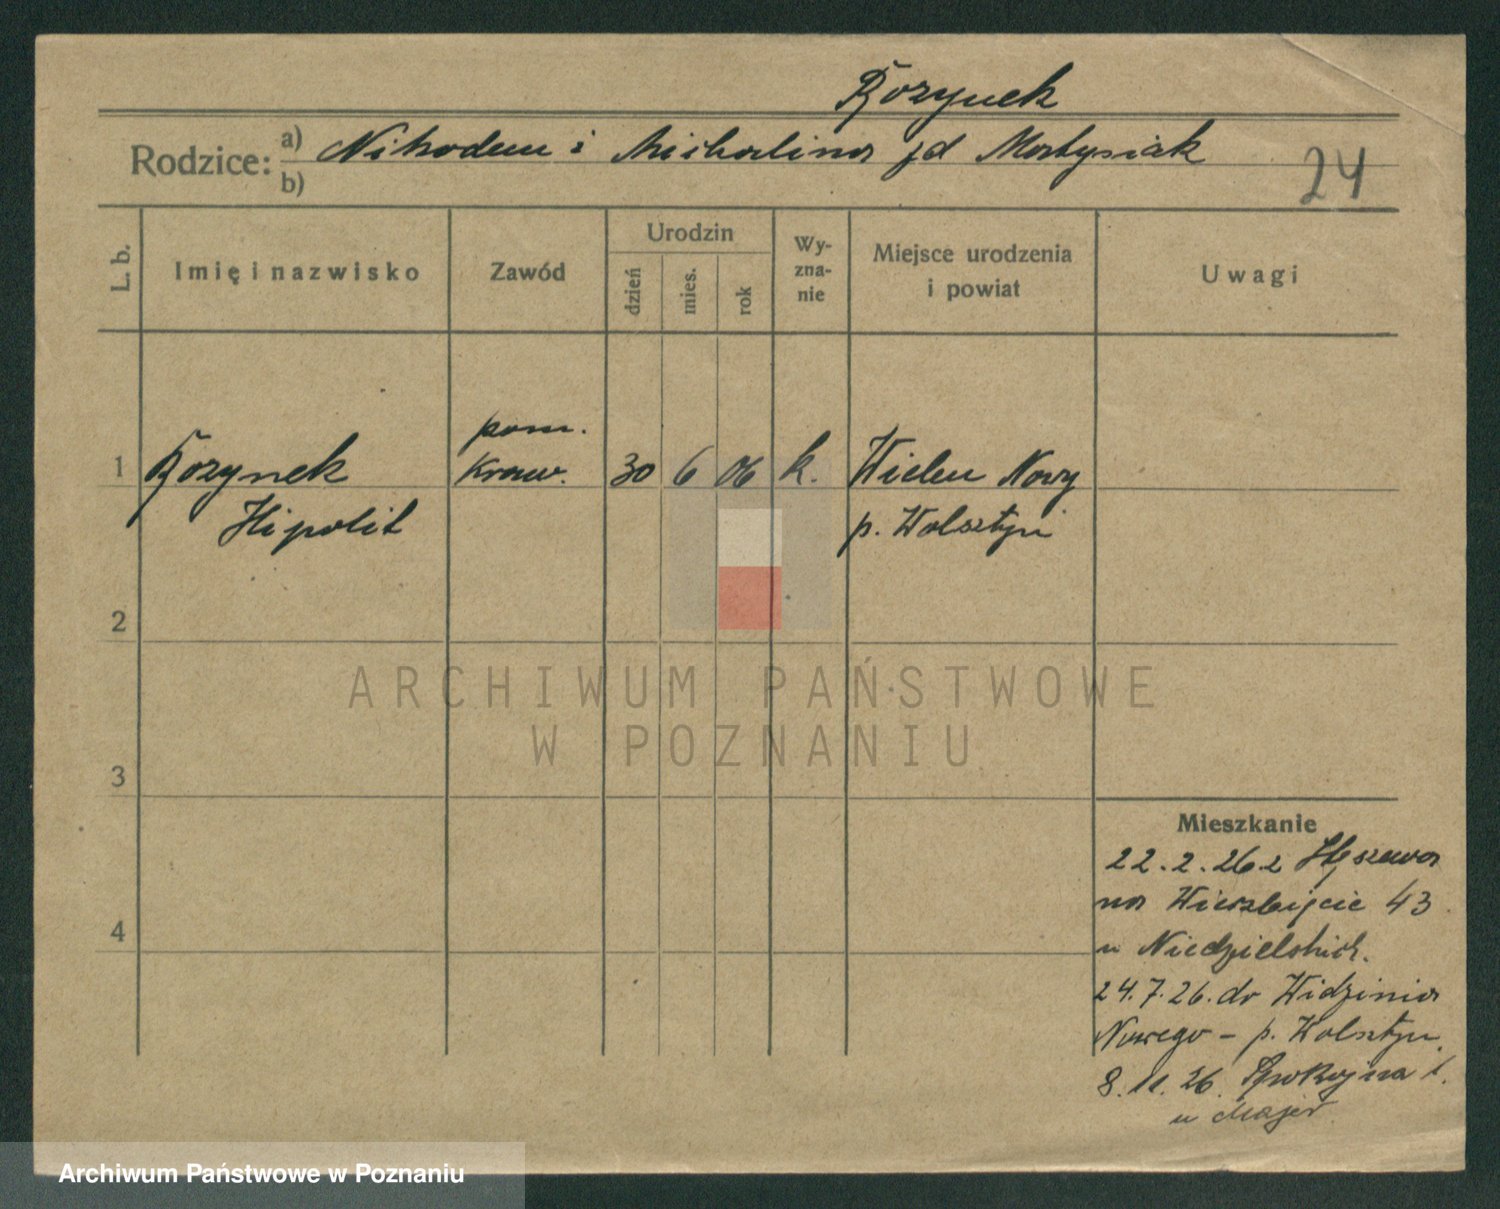 Bozynek
Rodzice: a) Nikodem i Michalina jd Matysiak
b)
24
L. b.
Imię i nazwisko
Zawód
Urodzin
dzień
mies.
rok
Wy-
zna-
nie
Miejsce urodzenia
i powiat
Uwagi
pom.
1 Bozynek kraw. 30 6 06 k. Wielen Nowy
Hipolit p. Wolsztyn
2
ARCHIWUM PAŃSTWOWE
W POZNANIU
3
Mieszkanie
22.2.26 z
na Wierzbięcie 43
4
u
24.7.26. do
Nowego - p. Wolsztyn.
8.11.26. Spokojna 1.
u Majer
Archiwum Państwowe w Poznaniu